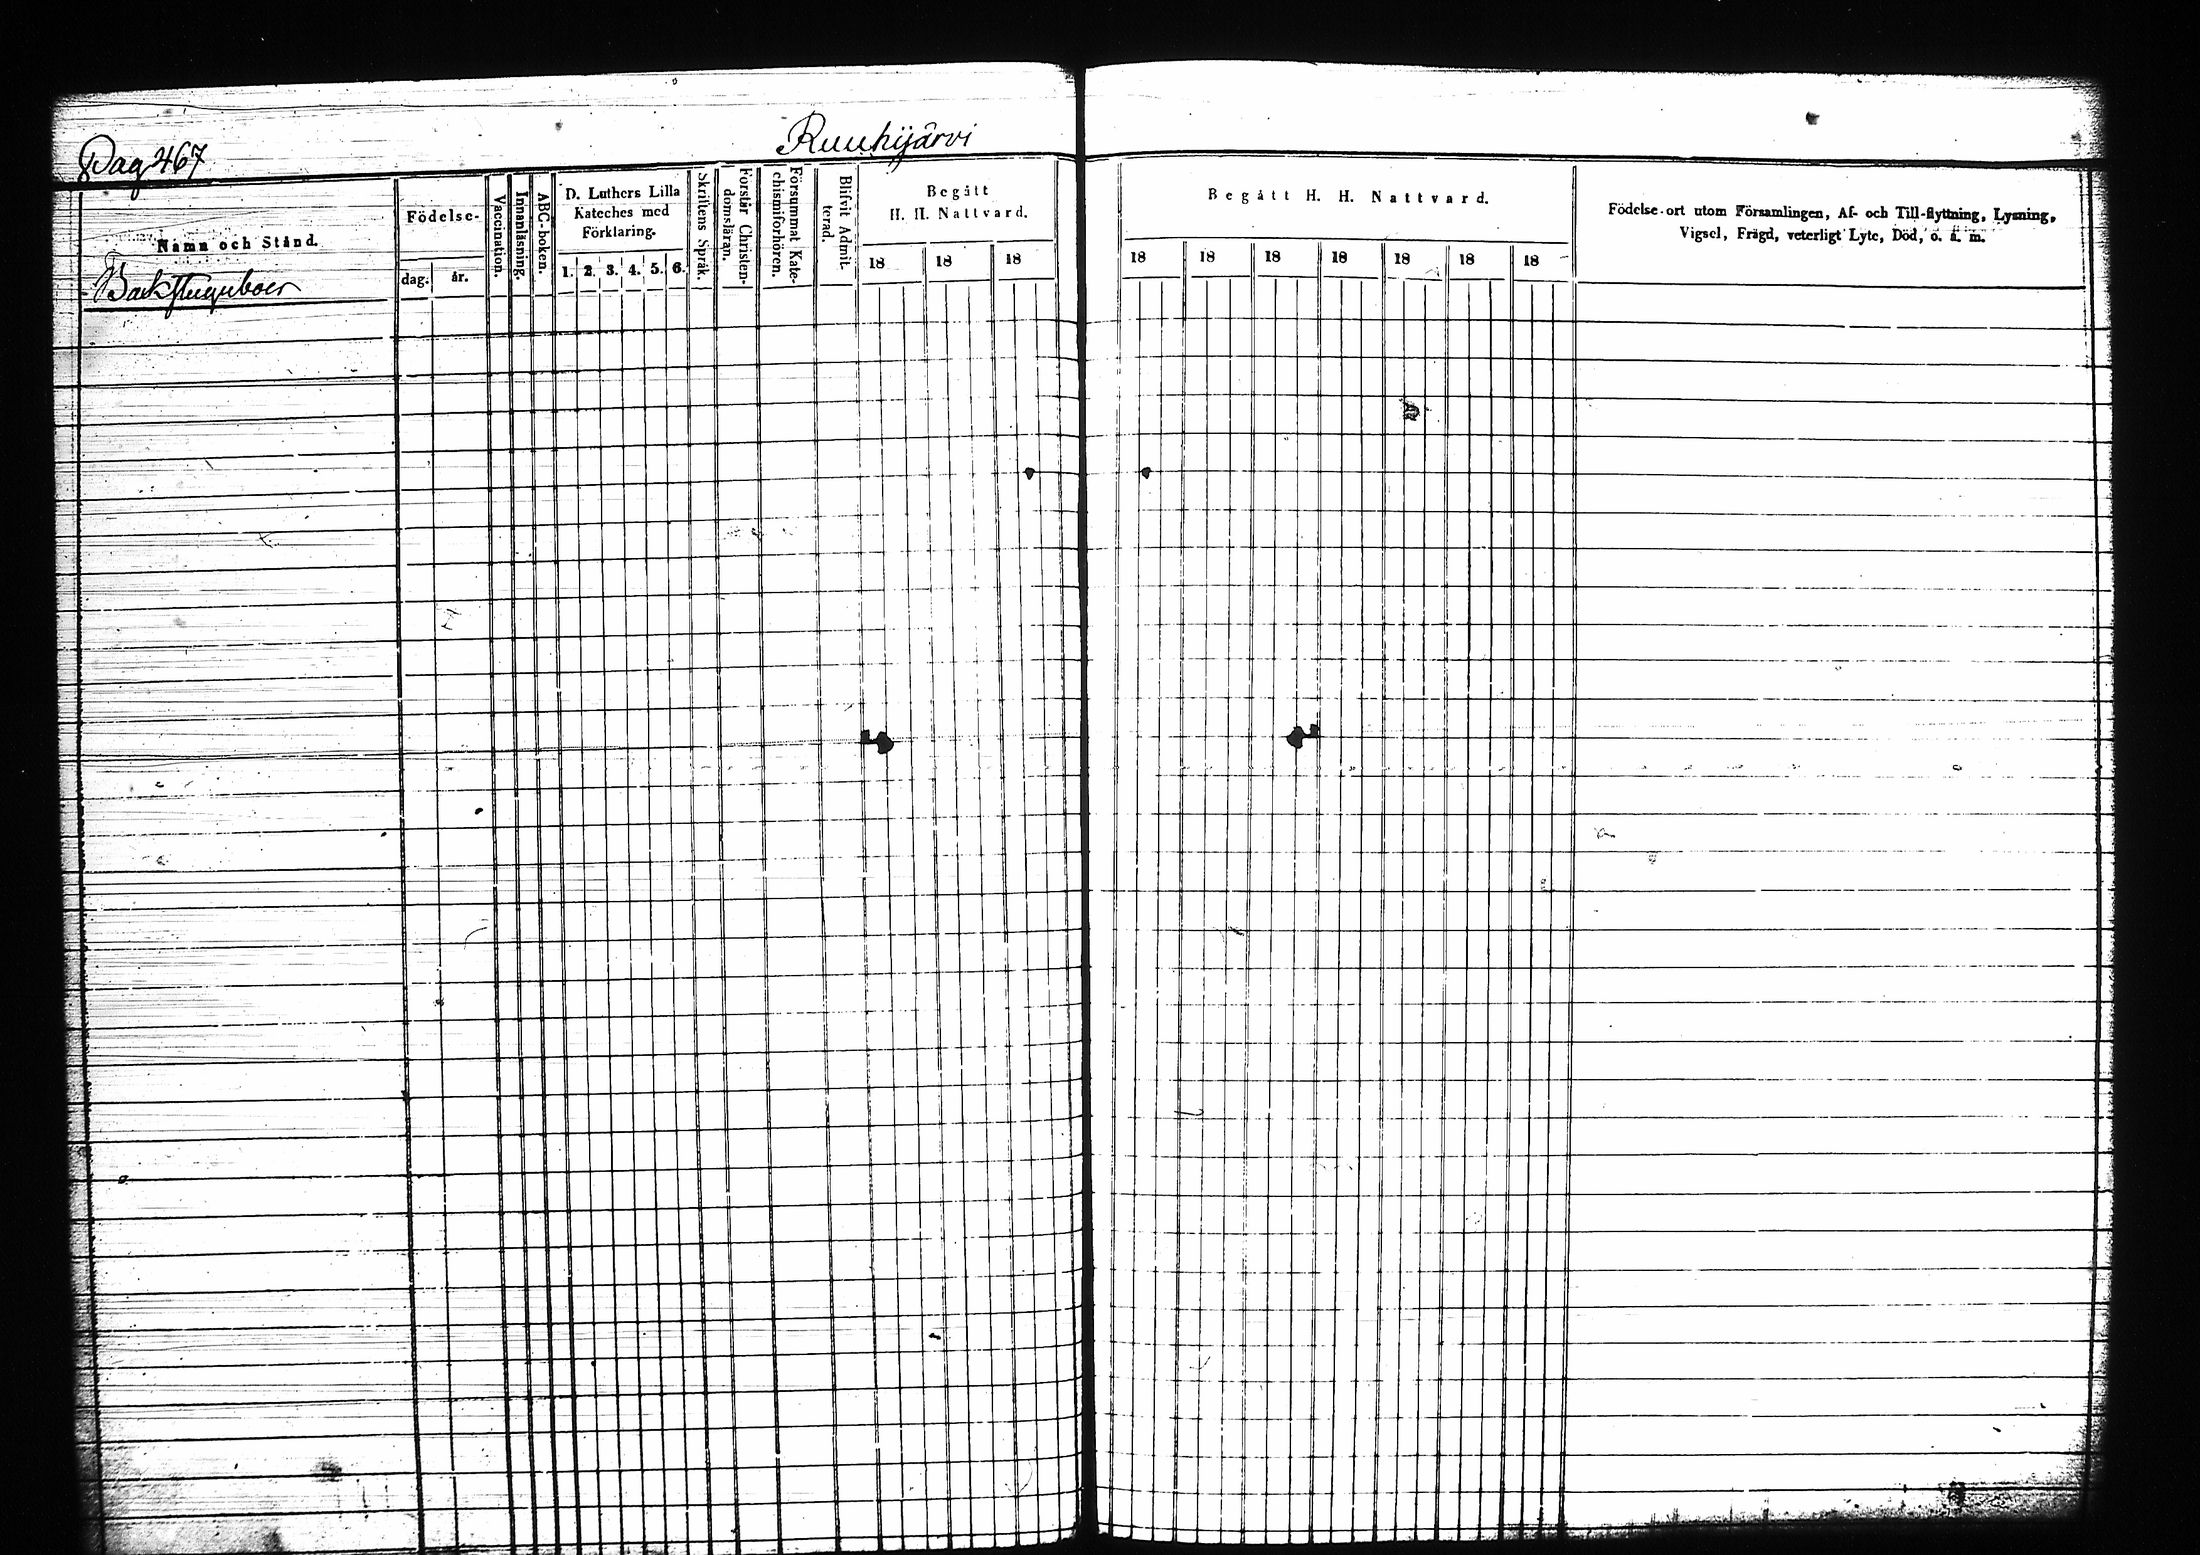 Pag 467
Ruuhijärvi
Namn och Stånd.
Födelse-
dag. år.
Vaccination.
Innanläsning.
ABC-boken.
D. Luthers Lilla
Kateches med
Förklaring.
1. 2. 3. 4. 5. 6.
Skriftens Språk.
Förstår Christen-
domsläran.
Försummat Kate-
chismiförhören.
Blifvit Admit-
terad.
Begått
H. H. Nattvard.
18 18 18
Begått H. H. Nattvard.
18 18 18 18 18 18 18
Födelse-ort utom Församlingen, Af- och Till-flyttning, Lysning,
Vigsel, Frägd, veterligt Lyte, Död, o. a. m.
Backstuguboer